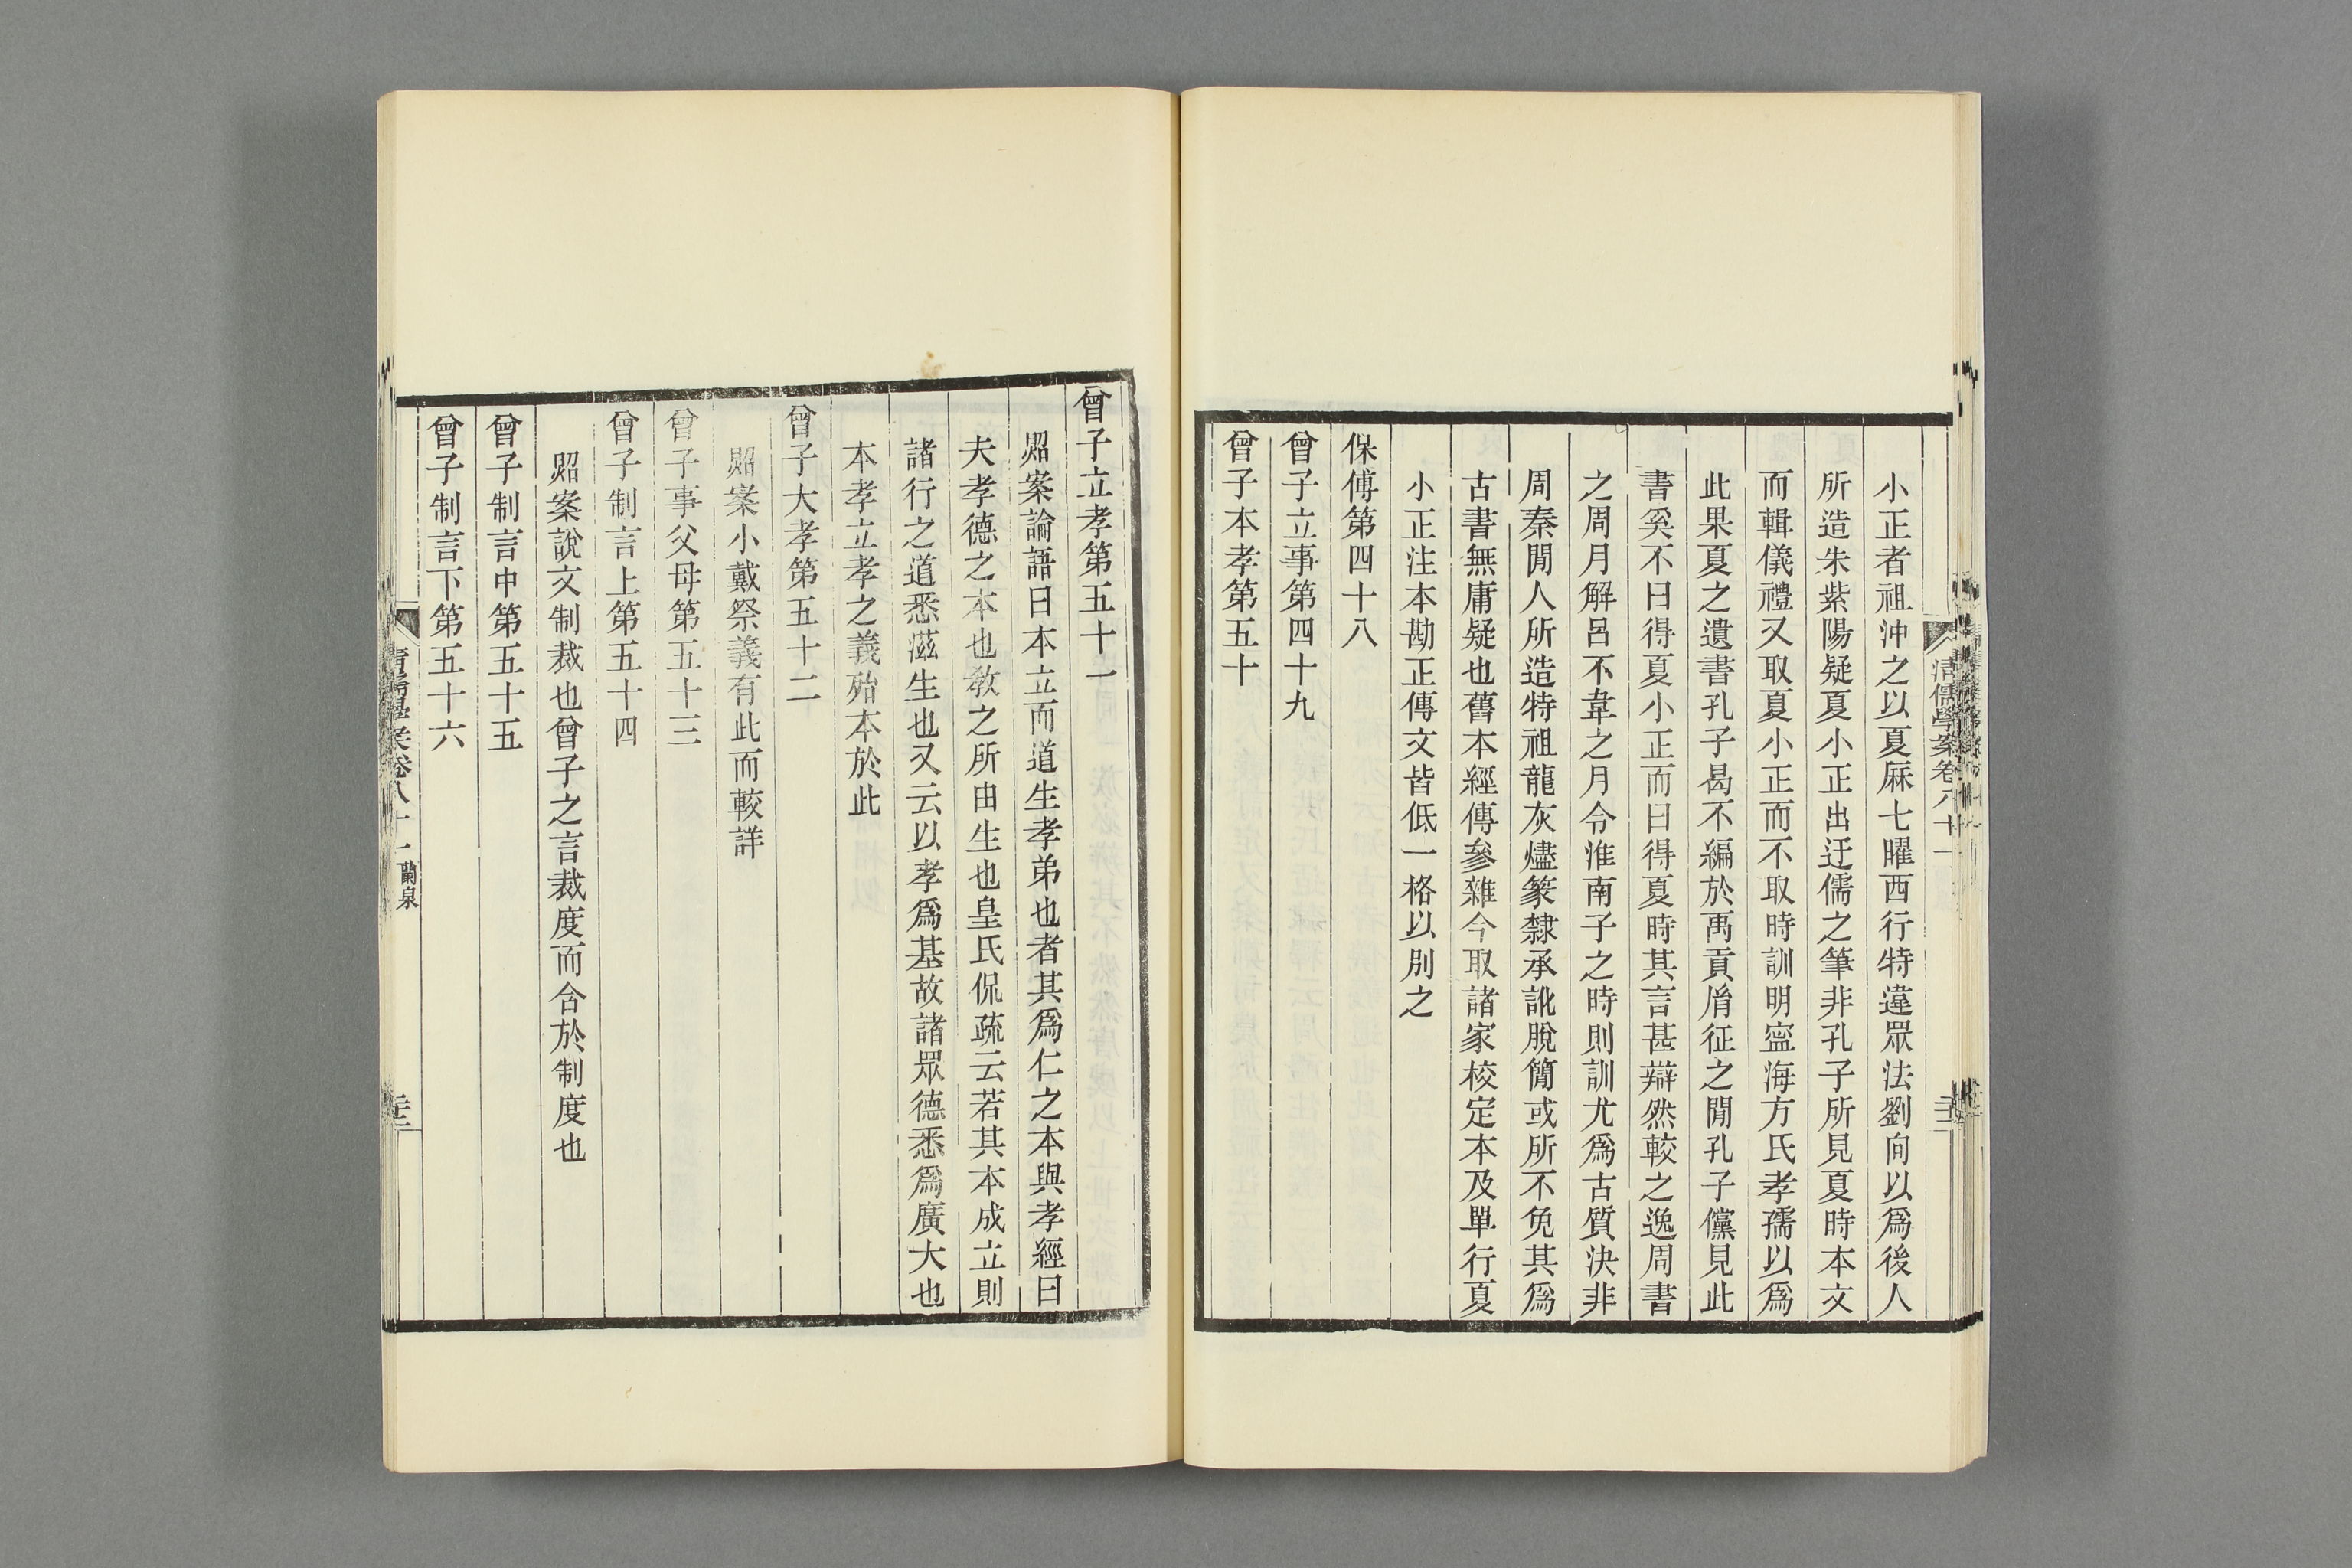 清儒學案卷八十一
小正者祖沖之以夏厤七曜西行特違眾法劉向以爲後人
所造朱紫陽疑夏小正出迂儒之筆非孔子所見夏時本文
而輯儀禮又取夏小正而不取時訓明寍海方氏孝孺以爲
此果夏之遺書孔子曷不編於禹貢㣧征之閒孔子儻見此
書奚不曰得夏小正而曰得夏時其言甚辯然較之逸周書
之周月解呂不韋之月令淮南子之時則訓尤爲古質決非
周秦閒人所造特祖龍灰燼篆隸承訛脫簡或所不免其爲
古書無庸疑也舊本經傳參雜今取諸家校定本及單行夏
小正注本勘正傳文皆低一格以別之
保傅第四十八
曾子立事第四十九
曾子本孝第五十
曾子立孝第五十一
照案論語曰本立而道生孝弟也者其爲仁之本與孝經曰
夫孝德之本也敎之所由生也皇氏侃疏云若其本成立則
諸行之道悉滋生也又云以孝爲基故諸眾德悉爲廣大也
本孝立孝之義殆本於此
曾子大孝第五十二
照案小戴祭義有此而較詳
曾子事父母第五十三
曾子制言上第五十四
照案說文制裁也曾子之言裁度而合於制度也
曾子制言中第五十五
曾子制言下第五十六
卷八十一 蘭泉